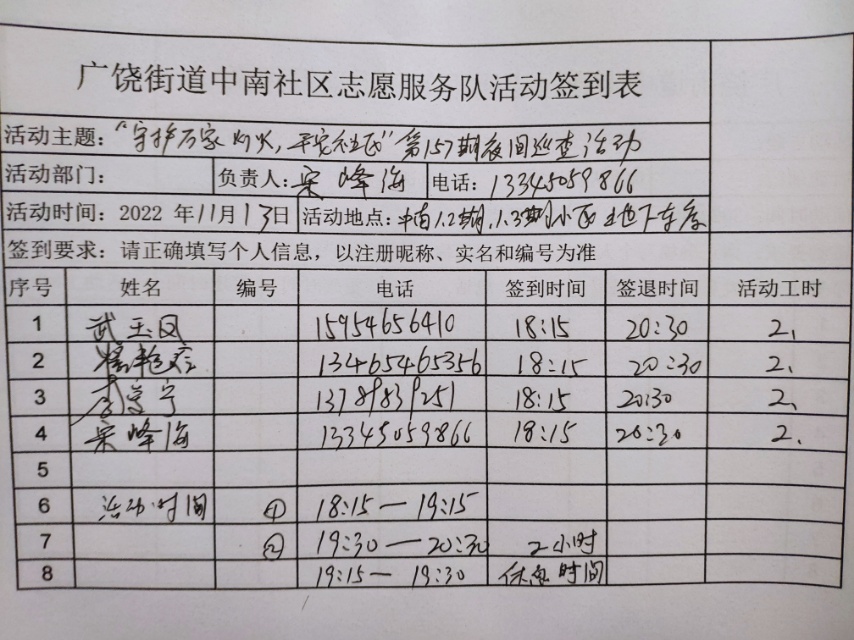 广饶街道中南社区志愿服务队活动签到表
活动主题："守护万家灯火，平安社区"第157期夜间巡查活动
活动部门： 负责人：宋峰海 电话：13345059866
活动时间：2022 年11月13日 活动地点：中南1.2期，1.3期小区地下车库
签到要求：请正确填写个人信息，以注册昵称、实名和编号为准
序号 姓名 编号 电话 签到时间 签退时间 活动工时
1 武玉凤 15954656410 18:15 20:30 2、
2 13465465356 18:15 20:30 2、
3 13789839251 18:15 20:30 2、
4 宋峰海 13345059866 18:15 20:30 2、
5
6 活动时间 ① 18:15—19:15
7 ② 19:30—20:30 2小时
8 19:15—19:30 休息时间